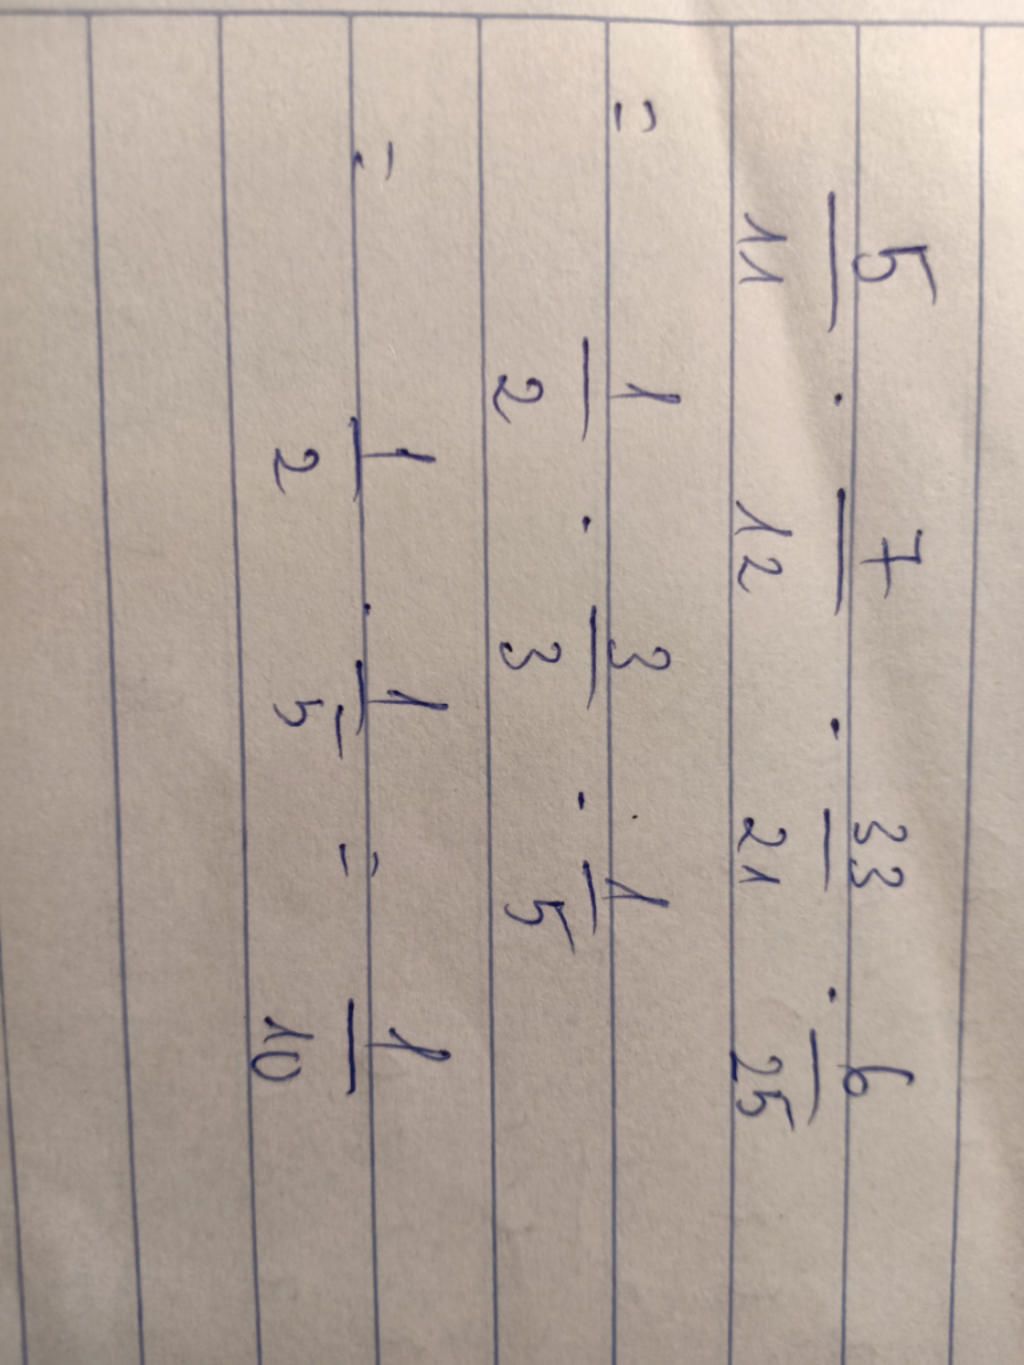 5/11 · 7/12 · 33/21 · 6/25
= 1/2 · 3/3 · 1/5
= 1/2 · 1/5 = 1/10